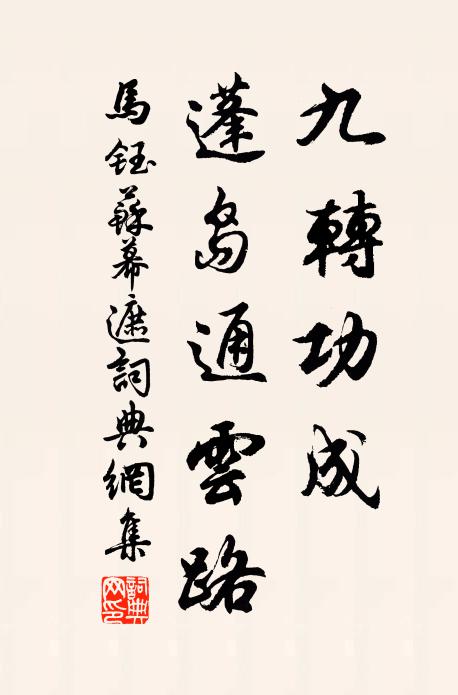 九轉功成
蓬島通雲路
馬鈺蘇幕遮詞典網集
詞典網印